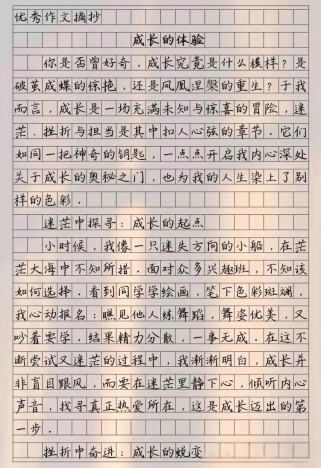 优秀作文摘抄
成长的体验
你是否曾好奇，成长究竟是什么模样？是
破茧成蝶的惊艳，还是凤凰涅槃的重生？于我
而言，成长是一场充满未知与惊喜的冒险，迷
茫、挫折与担当是其中扣人心弦的章节．它们
如同一把神奇的钥匙，一点点开启我内心深处
关于成长的奥秘之门，也为我的人生染上了别
样的色彩．
迷茫中探寻：成长的起点
小时候，我像一只迷失方向的小船，在茫
茫大海中不知所措．面对众多兴趣班，不知该
如何选择．看到同学学绘画，笔下色彩斑斓，
我心动报名；瞧见他人练舞蹈，舞姿优美，又
吵着要学，结果精力分散，一事无成．在这不
断尝试又迷茫的过程中，我渐渐明白，成长并
非盲目跟风，而要在迷茫里静下心，倾听内心
声音，找寻真正热爱所在，这是成长迈出的第
一步．
挫折中奋进：成长的蜕变